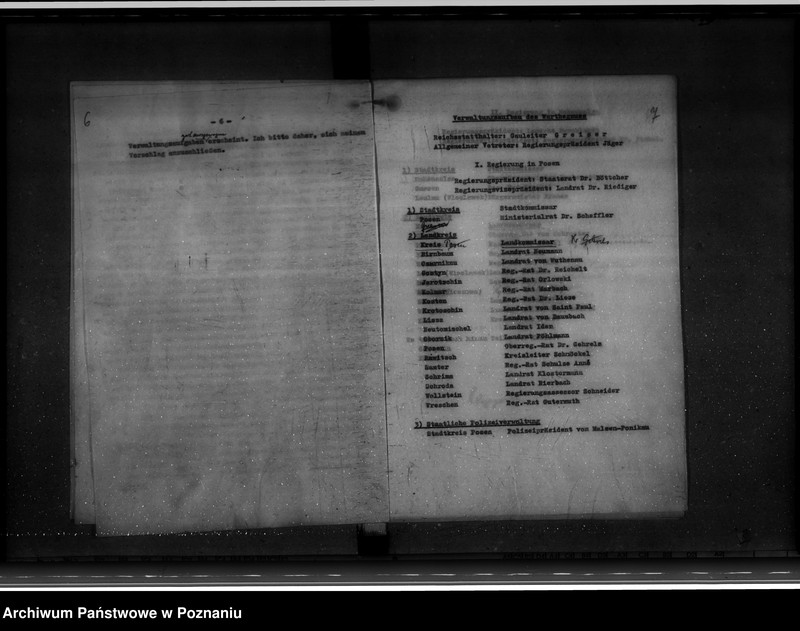 6
- 6 -
Verwaltungsausgaben erscheint. Ich bitte daher, sich meinem
Vorschlag anzuschließen.
7
Verwaltungsaufbau des Warthegaues
Reichsstatthalter: Gauleiter Greiser
Allgemeiner Vetreter: Regierungspräsident Jäger
I. Regierung in Posen
Regierungspräsident: Staatsrat Dr. Böttcher
Regierungsvizepräsident: Landrat Dr. Riediger
1) Stadtkreis Stadtkommissar
Posen Ministerialrat Dr. Scheffler
2) Landkreis
Kreis Landkommissar
Birnbaum Landrat Neumann
Czarnikau Landrat von Wuthenau
Gostyn Reg.-Rat Dr. Reichelt
Jarotschin Reg.-Rat Orlowski
Kolmar Reg.-Rat Marbach
Kosten Reg.-Rat Dr. Liese
Krotoschin Landrat von Saint Paul
Lissa Landrat von Baumbach
Neutomischel Landrat Iden
Obornik Landrat Pöhlmann
Posen Oberreg.-Rat Dr. Gehrels
Rawitsch Kreisleiter Schnückel
Samter Reg.-Rat Schulze Anné
Schrimm Landrat Klostermann
Schroda Landrat Bierbach
Wollstein Regierungsassessor Schneider
Wreschen Reg.-Rat Gutermuth
3) Staatliche Polizeiverwaltung
Stadtkreis Posen Polizeipräsident von Malsen-Ponikau
Archiwum Państwowe w Poznaniu